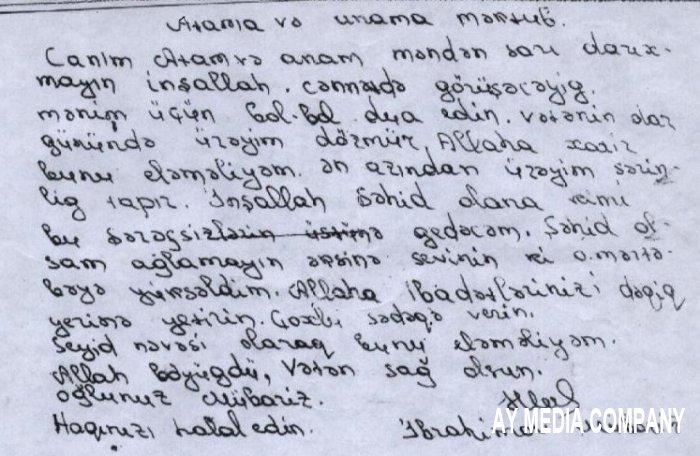 Atama və anama məktub.
Canım Atam və anam məndən sarı darıx-
mayın inşallah. cənnətdə görüşəcəyig.
mənim üçün bol-bol dua edin. vətənin dar
günündə ürəyim dözmür, Allaha xatir
bunu eləməliyəm. ən azından ürəyim sərin-
lig tapır. İnşallah Şəhid olana kimi
bu şərəfsizlərin üstünə gedəcəm. Şəhid ol-
sam ağlamayın əksinə sevinin ki o.mərtə-
bəyə yüksəldim. Allaha ibadətlərinizi dəqiq
yerinə yetirin. Çoxlu sədəqə verin.
Seyid nəvəsi olaraq bunu eləməliyəm.
Allah böyügdü, Vətən sağ olsun.
oğlunuz Mübariz.
Haqınızı halal edin.
AY MEDIA COMPANY